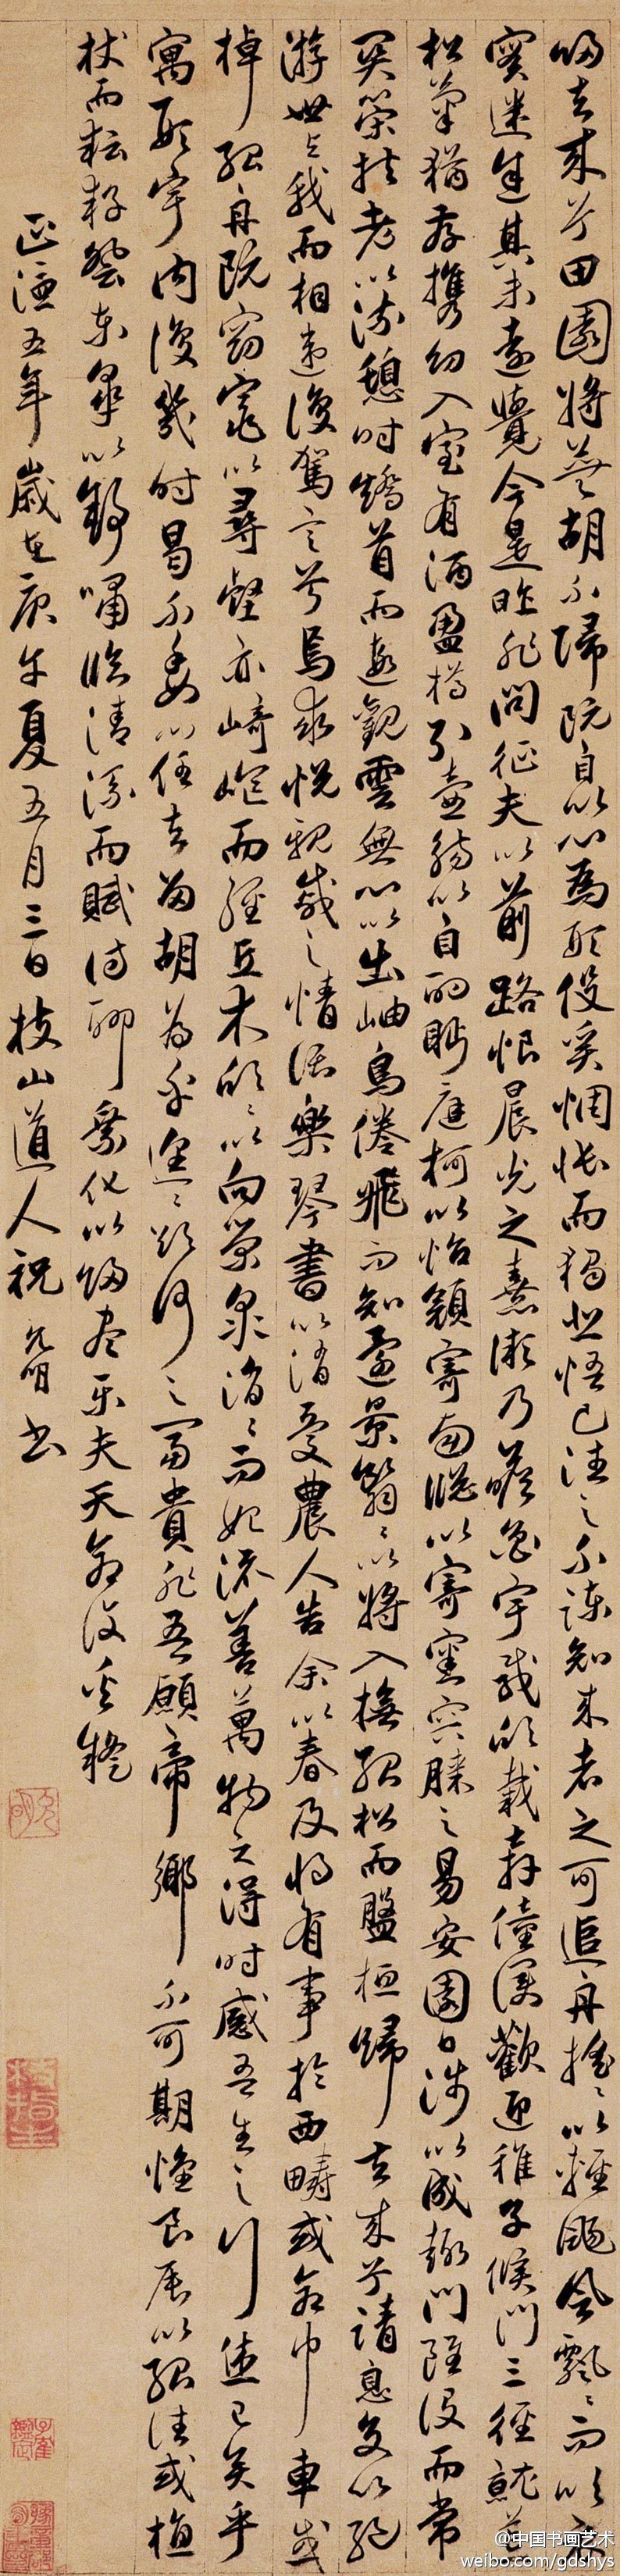 歸去來兮田園將蕪胡不歸既自以心爲形役奚惆悵而獨悲悟已往之不諫知來者之可追舟摇〻以輕颺風飄〻而吹衣
實迷途其未遠覺今是昨非問征夫以前路恨晨光之熹微乃瞻衡宇載欣載奔僮僕歡迎稚子候門三徑就荒
松菊猶存攜幼入室有酒盈樽引壺觴以自酌眄庭柯以怡顔寄南牕以寄審容膝之易安園日涉以成趣門雖設而常
関策扶老以流憩時矯首而遐觀雲無心以出岫鳥倦飛而知還景翳〻以將入撫孤松而盤桓歸去來兮請息交以絶
游世與我而相違復駕言兮焉求悅親戚之情話樂琴書以消憂農人告余以春及將有事於西疇或命巾車或
棹孤舟既窈窕以尋壑亦崎嶇而經丘木欣〻以向榮泉涓〻而始流善萬物之得時感吾生之行休已矣乎
寓形宇內復幾時曷不委心任去留胡爲乎遑〻欲何之富貴非吾願帝鄉不可期懷良辰以孤往或植
杖而耘耔登東皋以舒嘯臨清流而賦詩聊乘化以歸盡樂夫天命復奚疑
正德五年歲在庚午夏五月三日枝山道人祝允明書
允明
@中国书画艺术
weibo.com/gdshys